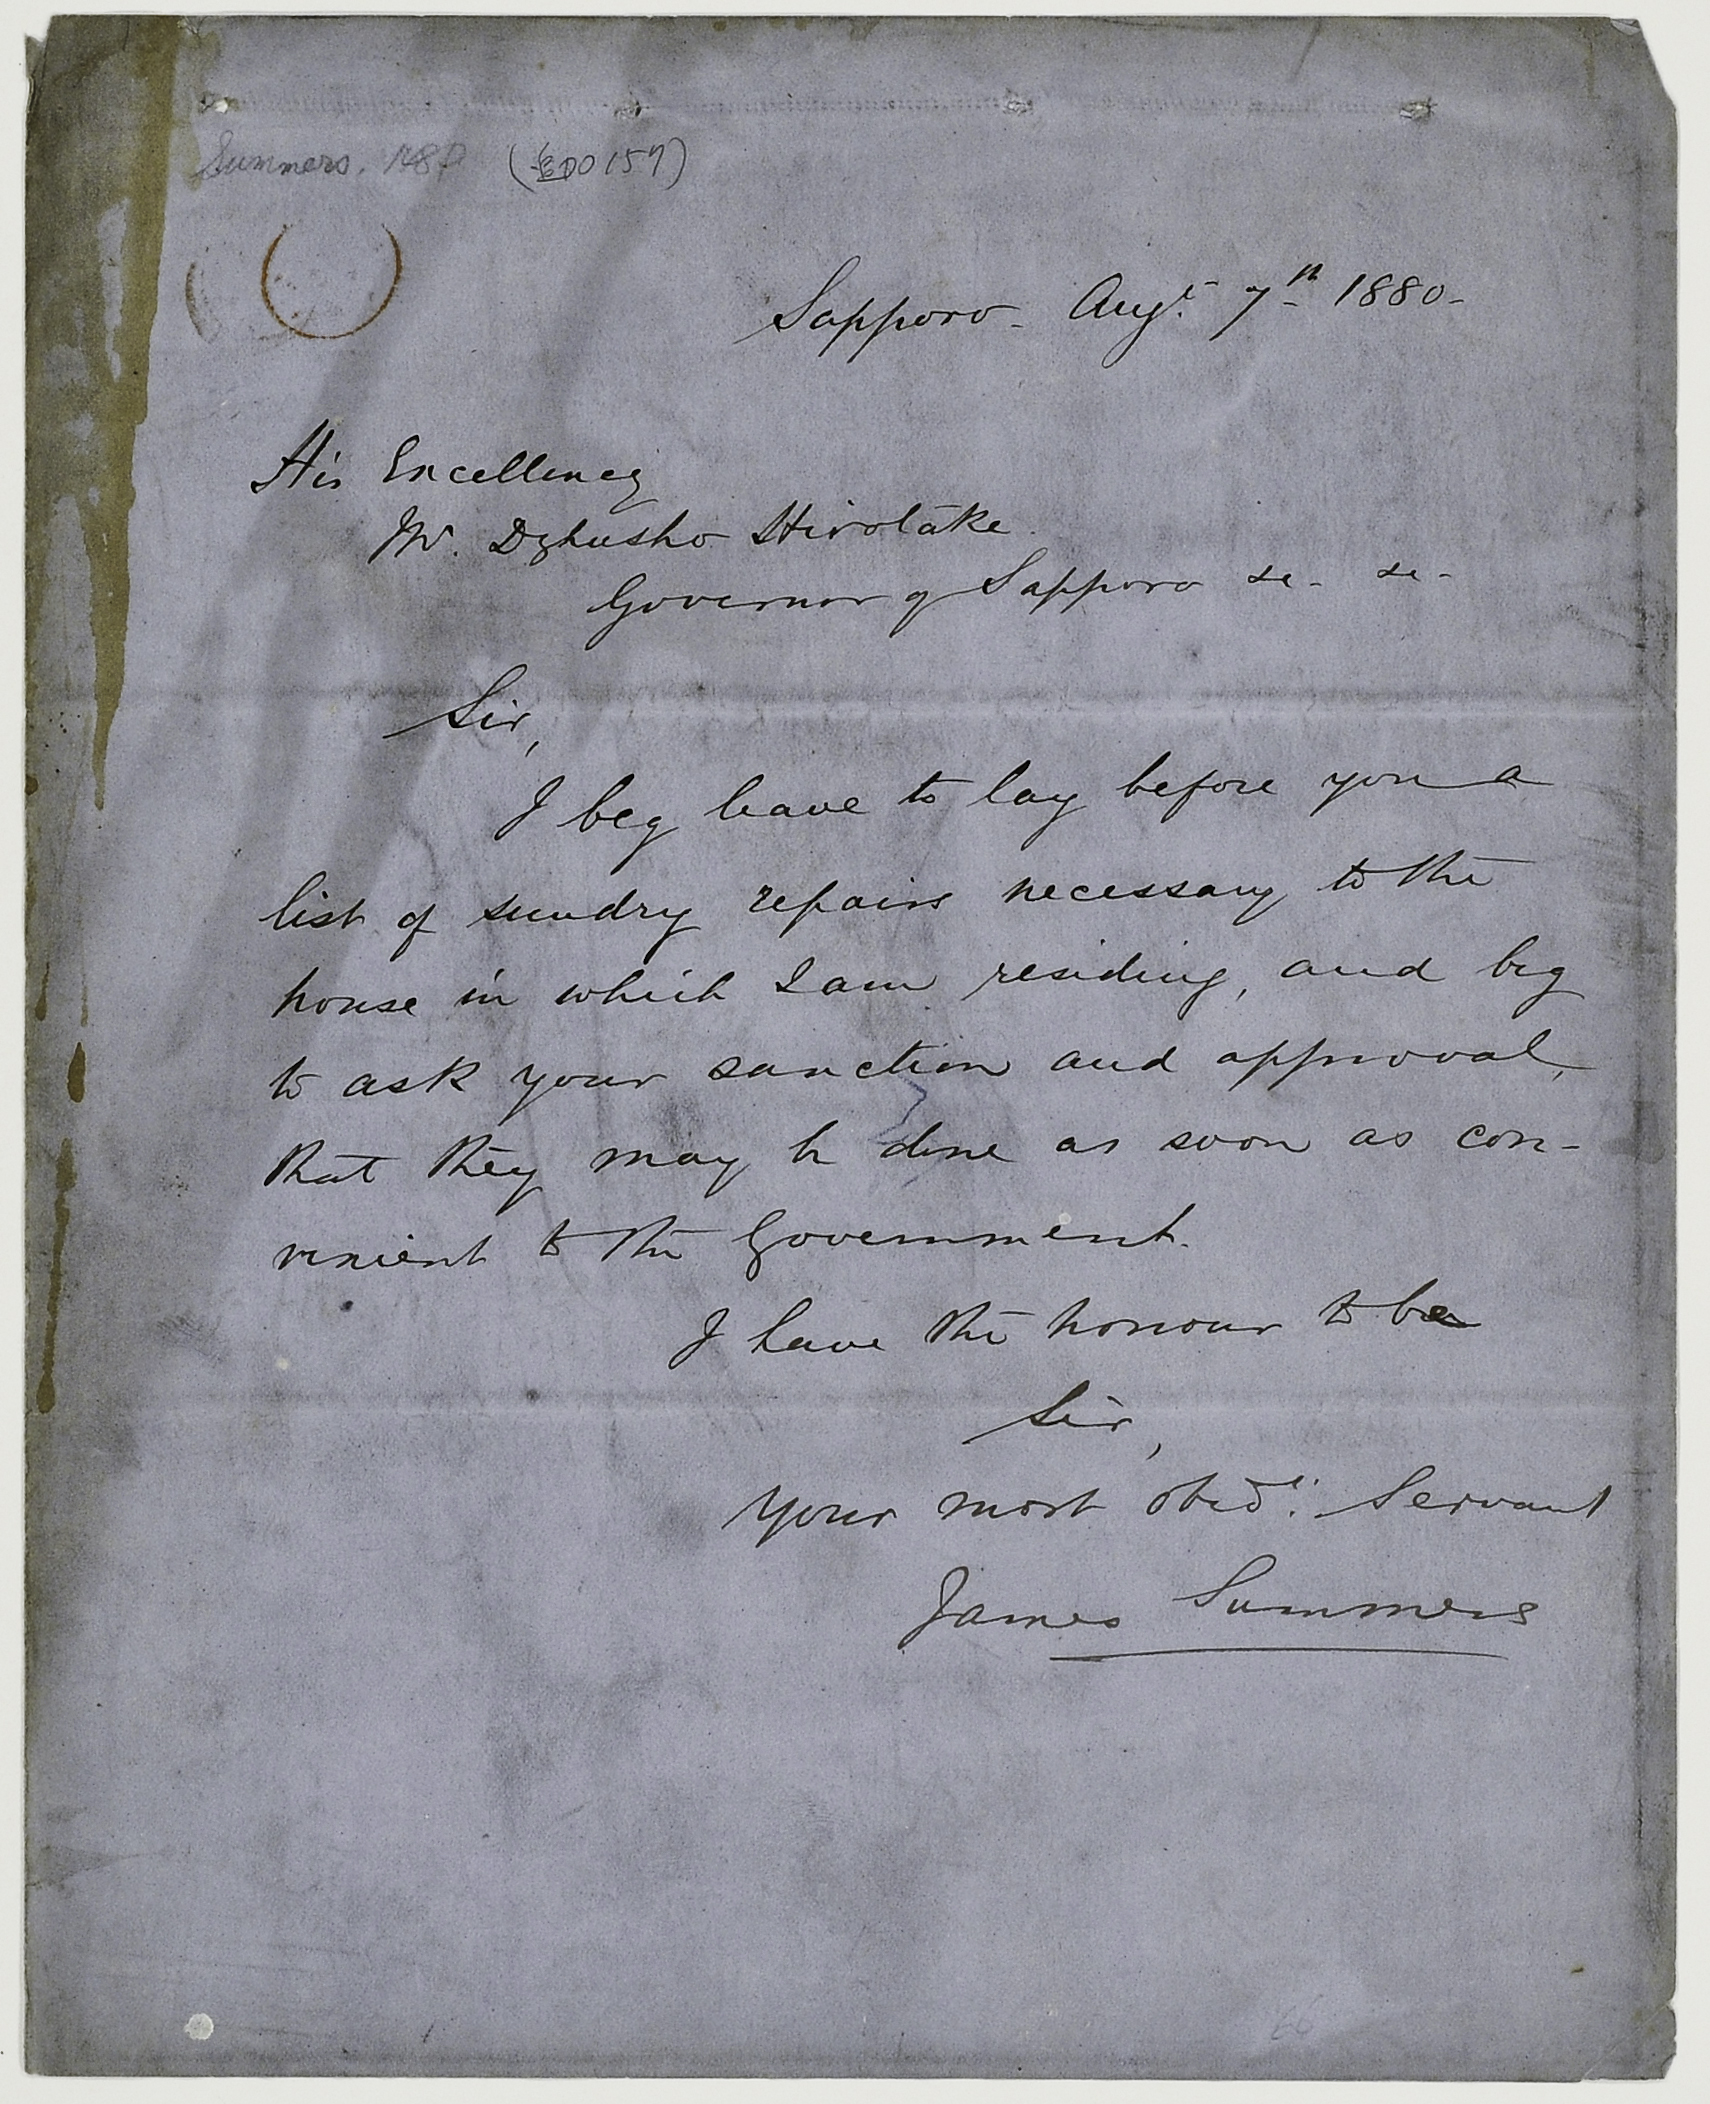 Summers. 1880 (BO 157)
Sapporo - Augt. 7th 1880 -
His Excellency
Mr. Dzhusho Hirotake
Governor of Sapporo &c - &c -
Sir,
I beg leave to lay before you a
list of sundry repairs necessary to the
house in which I am residing, and beg
to ask your sanction and approval,
that they may be done as soon as con-
venient to the Government.
I have the honour to be
Sir,
Your most obedt. Servant
James Summers